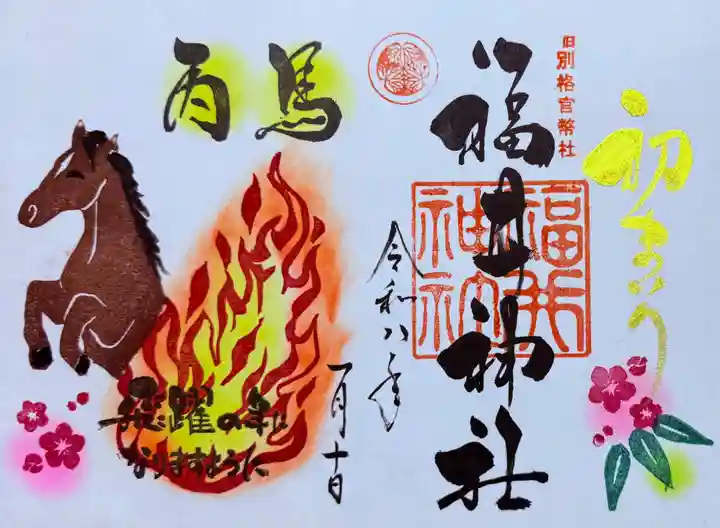 初まいり
旧別格官幣社
福井神社
福井
神社
令和八年
一月十日
馬
丙
飛躍の年に
なりますように